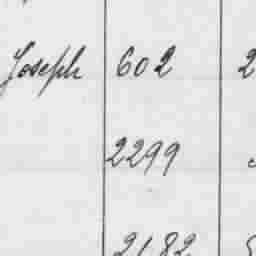 Joseph 602 2
2299
2182